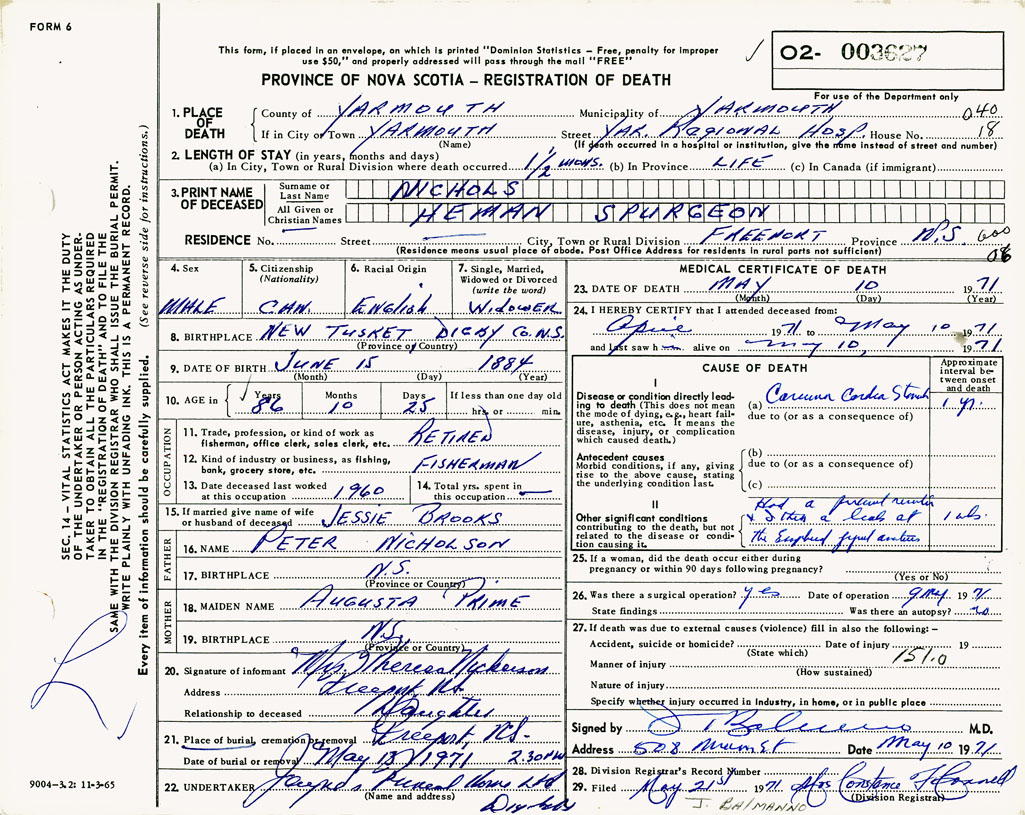 FORM 6
This form, if placed in an envelope, on which is printed "Dominion Statistics – Free, penalty for improper
use $50," and properly addressed will pass through the mail "FREE"
PROVINCE OF NOVA SCOTIA – REGISTRATION OF DEATH
02- 003627
For use of the Department only
SEC. 14 – VITAL STATISTICS ACT MAKES IT THE DUTY
OF THE UNDERTAKER OR PERSON ACTING AS UNDER-
TAKER TO OBTAIN ALL THE PARTICULARS REQUIRED
IN THE "REGISTRATION OF DEATH" AND TO FILE THE
SAME WITH THE DIVISION REGISTRAR WHO SHALL ISSUE THE BURIAL PERMIT.
WRITE PLAINLY WITH UNFADING INK. THIS IS A PERMANENT RECORD.
Every item of information should be carefully supplied. (See reverse side for instructions.)
1. PLACE OF DEATH
County of YARMOUTH Municipality of YARMOUTH 040
If in City or Town YARMOUTH Street YAR. REGIONAL HOSP. House No. 18
(Name) (If death occurred in a hospital or institution, give the name instead of street and number)
2. LENGTH OF STAY (in years, months and days)
(a) In City, Town or Rural Division where death occurred 1 1/2 MONS. (b) In Province LIFE (c) In Canada (if immigrant)
3. PRINT NAME OF DECEASED
Surname or Last Name NICHOLS
All Given or Christian Names HEMAN SPURGEON
RESIDENCE No. Street City, Town or Rural Division FREEPORT Province N.S. 600
(Residence means usual place of abode. Post Office Address for residents in rural parts not sufficient) 08
4. Sex MALE
5. Citizenship (Nationality) CAN.
6. Racial Origin English
7. Single, Married, Widowed or Divorced (write the word) WIDOWER
8. BIRTHPLACE NEW TUSKET DIGBY CO. N.S.
(Province or Country)
9. DATE OF BIRTH JUNE 15 1884
(Month) (Day) (Year)
10. AGE in Years 86 Months 10 Days 25 If less than one day old hrs. or min.
OCCUPATION
11. Trade, profession, or kind of work as fisherman, office clerk, sales clerk, etc. RETIRED
12. Kind of industry or business, as fishing, bank, grocery store, etc. FISHERMAN
13. Date deceased last worked at this occupation 1960
14. Total yrs. spent in this occupation —
15. If married give name of wife or husband of deceased JESSIE BROOKS
FATHER
16. NAME PETER NICHOLSON
17. BIRTHPLACE N.S.
(Province or Country)
MOTHER
18. MAIDEN NAME AUGUSTA PRIME
19. BIRTHPLACE N.S.
(Province or Country)
20. Signature of informant Mrs. Theresa Nickerson
Address Freeport N.S.
Relationship to deceased Daughter
21. Place of burial, cremation or removal Freeport N.S.
Date of burial or removal May 13, 1971 2.30 PM
22. UNDERTAKER Funeral Home Ltd
(Name and address) Digby
MEDICAL CERTIFICATE OF DEATH
23. DATE OF DEATH MAY 10 1971
(Month) (Day) (Year)
24. I HEREBY CERTIFY that I attended deceased from:
April 1971 to May 10 1971
and last saw h alive on May 10, 1971
CAUSE OF DEATH
Approximate interval between onset and death
I
Disease or condition directly leading to death (This does not mean the mode of dying, e.g., heart failure, asthenia, etc. It means the disease, injury, or complication which caused death.)
(a) Cardia Stomach 1 yr.
due to (or as a consequence of)
Antecedent causes
Morbid conditions, if any, giving rise to the above cause, stating the underlying condition last.
(b)
due to (or as a consequence of)
(c)
II
Other significant conditions contributing to the death, but not related to the disease or condition causing it.
Had a
a leak at
the
25. If a woman, did the death occur either during pregnancy or within 90 days following pregnancy?
(Yes or No)
26. Was there a surgical operation? yes Date of operation 9 May 1971
State findings Was there an autopsy? no
27. If death was due to external causes (violence) fill in also the following: –
Accident, suicide or homicide? Date of injury 19
(State which) 151.0
Manner of injury
(How sustained)
Nature of injury
Specify whether injury occurred in industry, in home, or in public place
Signed by M.D.
Address 508 Main St Date May 10 1971
28. Division Registrar's Record Number
29. Filed May 21st 1971 Mrs Constance
(Division Registrar)
J. BALMANNO
9004–3.2: 11-3-65